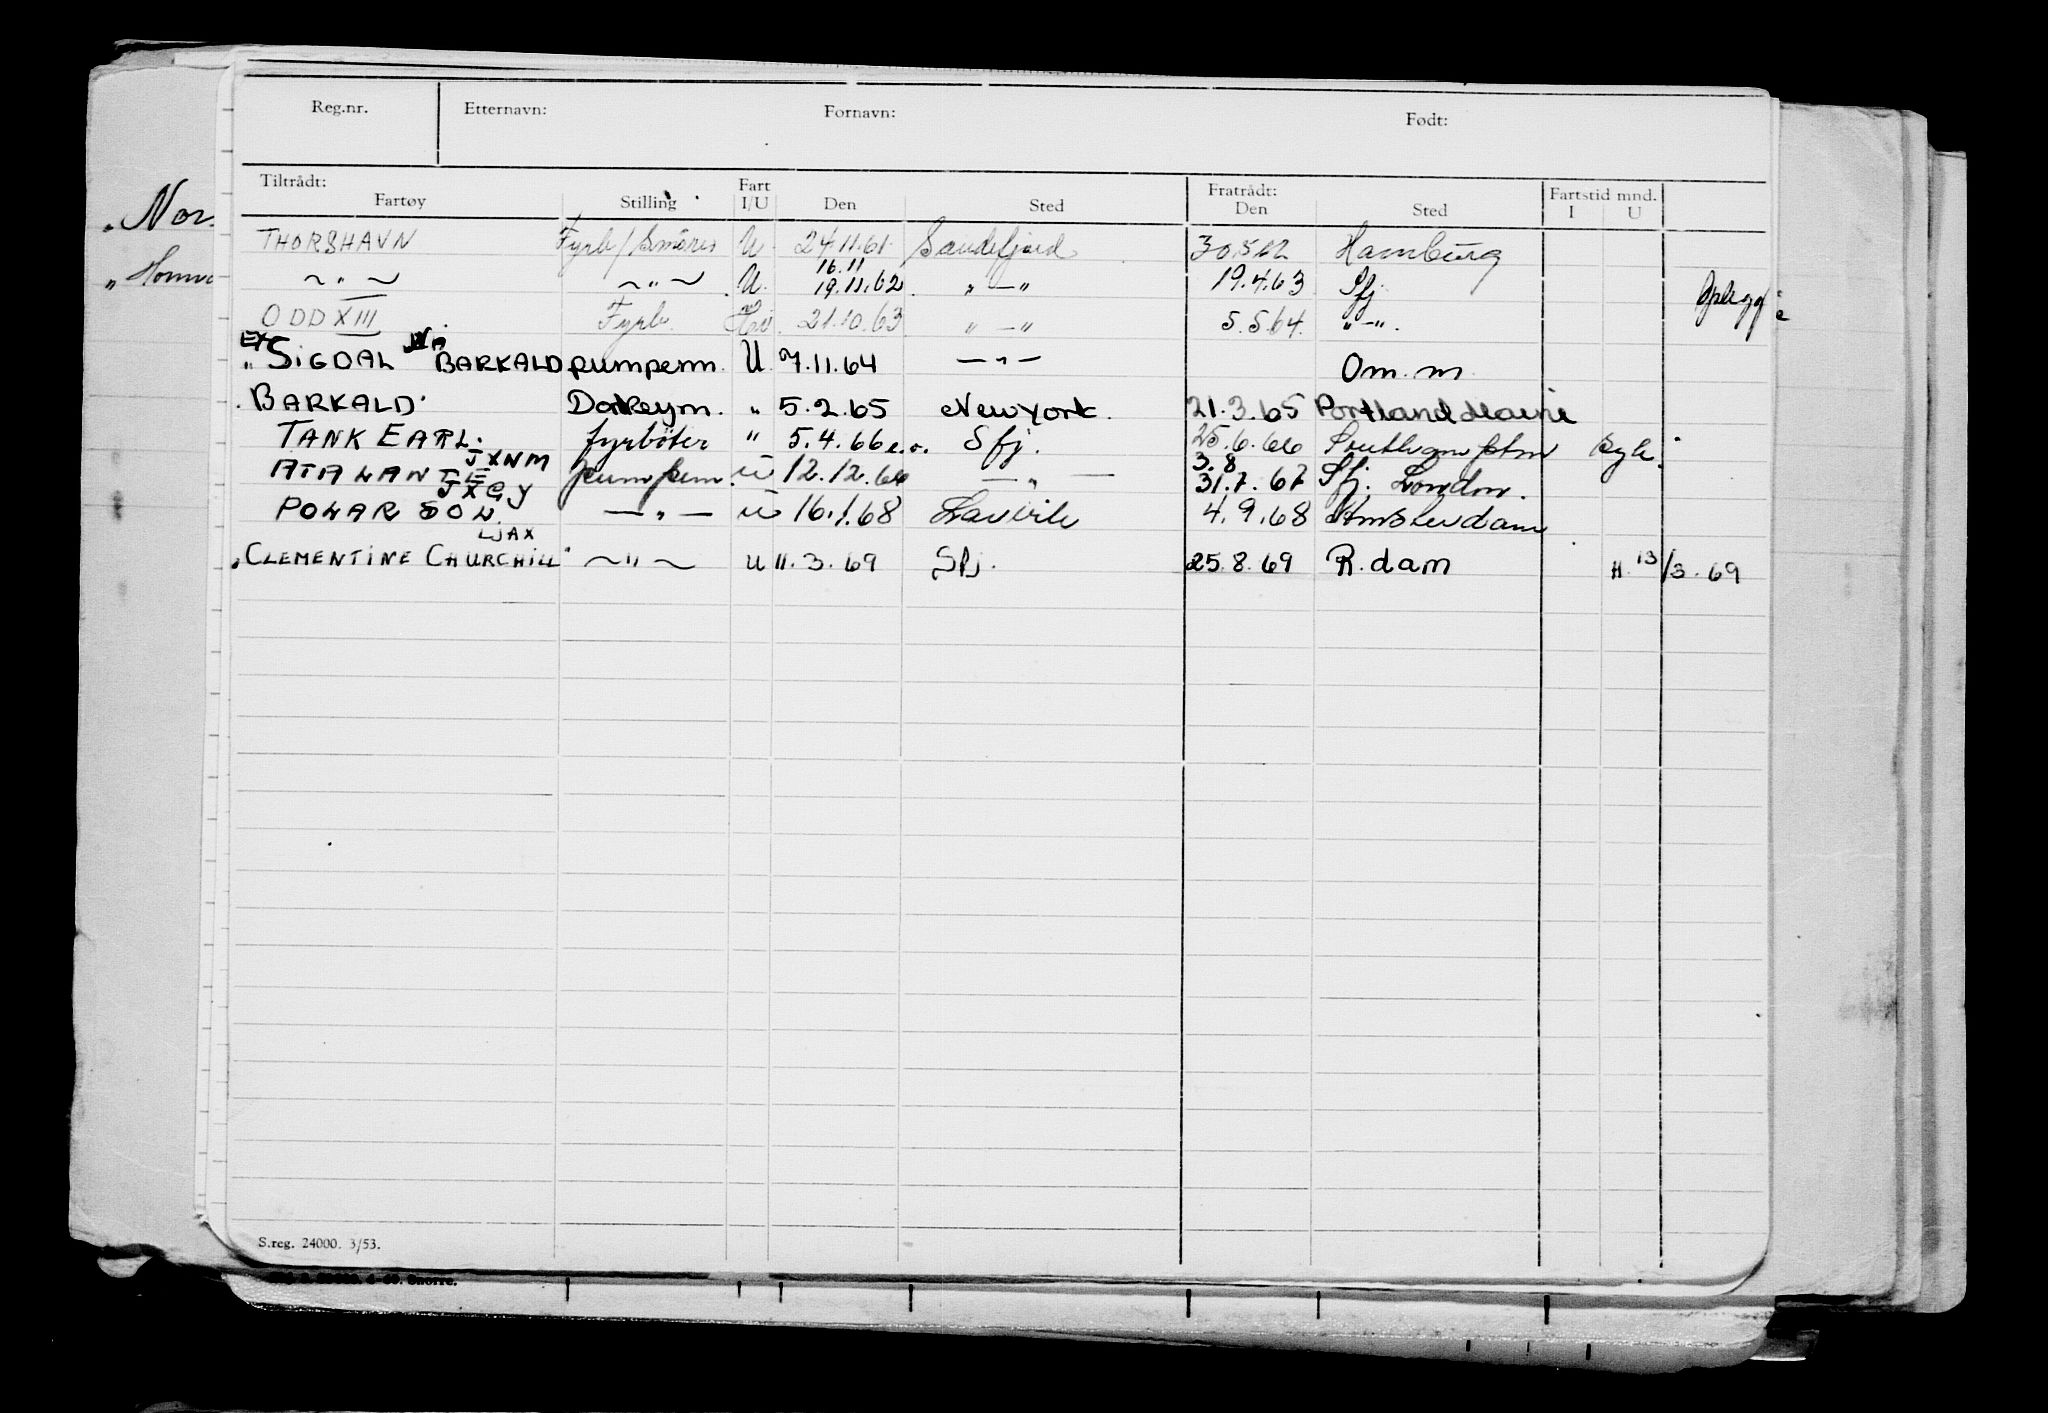 Reg.nr. Etternavn: Fornavn: Født:
Tiltrådt: Fart Fratrådt: Fartstid mnd.
Fartøy Stilling I/U Den Sted Den Sted I U
THORSHAVN Fyrb/Smörer U 24.11.61 Sandefjord 30.5.62 Hamburg
~ " ~ ~ " ~ U. 16.11 19.11.62 " — " 19.4.63 Sfj Oplegg
ODD XIII Fyrb. Hv. 21.10.63 " — " 5.5.64. " — ".
EX " SIGDAL NÅ BARKALD pumpem. U. 7.11.64 — " — Om. m.
. BARKALD. Dokeym. " 5.2.65 New York. 21.3.65 Portland Maine
TANK EARL. fyrböter " 5.4.66 e.o. Sfj. 25.6.66 Southampton Syk.
JXNM
ATALANTE Pumpem. U 12.12.66 — " — 3.8 31.7.67 Sfj. London.
JXGY
POLAR SOL. — " — U 16.1.68 Larvik 4.9.68 Amsterdam
LJAX
. CLEMENTINE CHURCHILL" ~ " ~ U 11.3.69 Sfj. 25.8.69 R.dam H. 13/3.69
" Nor.
S.reg. 24000. 3/53.